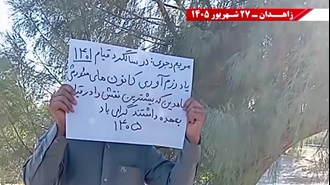 زاهدان - ۲۷ شهریور ۱۴۰۵
مریم رجوی: در سالگرد قیام ۱۴۰۱
یاد رزم‌آوری کانون‌های شورشی
مجاهدین که بیشترین نقش را در قیام
بعهده داشتند گرامی باد
۱۴۰۵